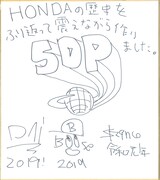 HONDAの歴史を
ふり返って震えながら作り
ました。
50P
DAI
2019!
B
2019